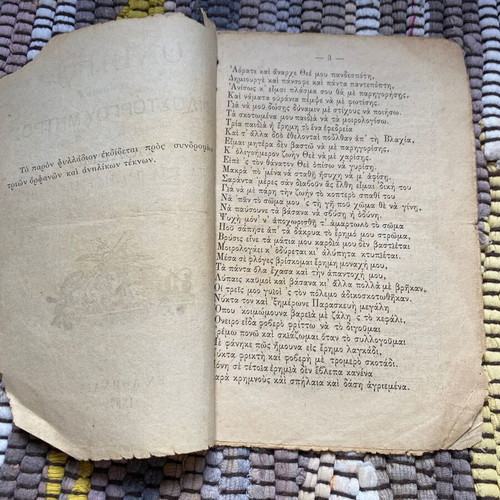 Τὸ παρὸν φυλλάδιον ἐκδίδεται πρὸς συνδρομὴν
τριῶν ὀρφανῶν καὶ ἀνηλίκων τέκνων.
— 3 —
Ἀόρατε καὶ ἄναρχε Θεέ μου πανδεσπότη,
Δημιουργὲ καὶ πάνσοφε καὶ πάντα παντεπόπτη,
Ἀνίσως κ' εἶμαι πλάσμα σου θὰ μὲ παρηγορήσῃς.
Καὶ νάματα οὐράνια πέμψε νὰ μὲ φωτίσῃς.
Γιὰ νά μου δώσῃς δύναμιν μὲ στίχους νὰ ποιήσω.
Τὰ σκοτωμένα μου παιδιὰ νὰ τὰ μοιρολογίσω.
Τρία παιδιὰ ἡ ἔρημη τὸ ἕνα ἐφεδρεία
Καὶ τ' ἄλλα δύο ἐθελονταὶ ποῦλθαν ἀπ' τὴ Βλαχία,
Εἶμαι μητέρα δὲν βαστῶ νὰ μὲ παρηγορήσῃς,
Κ' ὀλιγοήμερον ζωὴν Θεὲ νὰ μὲ χαρίσῃς.
Εἰπὲ 'ς τὸν θάνατον Θεὲ ὀπίσω νὰ γυρίσῃ.
Μακρὰ 'πὸ 'μένα νὰ σταθῇ ἥσυχη νὰ μ' ἀφίσῃ.
Σαράντα 'μέρες σὰν διαβοῦν ἂς ἔλθῃ εἶμαι δική του
Γιὰ νὰ μὲ πάρῃ τὴν ζωὴν τὸ κοπτερὸ σπαθί του
Νὰ 'πᾶν τὸ σῶμα μου 'ς τὴ γῆ ποῦ χῶμα θὲ νὰ γίνῃ,
Νὰ παύσουνε τὰ βάσανα νὰ σβύσῃ ἡ ὀδύνη.
Ψυχή μου ν' ἀποχωρισθῇ τ' ἁμαρτωλὸ τὸ σῶμα
Ποῦ σάπησε ἀπ' τὰ δάκρυα τὸ ἔρημό μου στρῶμα,
Βρύσις εἶνε τὰ μάτια μου καρδιά μου δὲν βαστιέται
Μοιρολαγάει κ' ὀδύρεται κι' ἀλύπητα κτυπιέται.
Μέσα σὲ φλόγες βρίσκομαι ἔρημη μοναχή μου,
Τὰ πάντα ὅλα ἔχασα καὶ τὴν ἀπαντοχή μου.
Λύπαις καϋμοὶ καὶ βάσανα κι' ἄλλα πολλὰ μὲ βρῆκαν.
Οἱ τρεῖς μου γυιοὶ 'ς τὸν πόλεμο ἀδικοσκοτωθῆκαν.
Νύκτα τον καὶ 'ξημέρωνε Παρασκευὴ μεγάλη
Ὅπου κοιμώμουνα βαρειὰ μὲ ζάλη 'ς τὸ κεφάλι.
Ὄνειρο εἶδα φοβερὸ φρίττω νὰ τὸ διγοῦμαι
Τρέμω πονῶ καὶ σκιάζωμαι ὅταν τὸ συλλογοῦμαι
Μὲ φάνηκε πῶς ἤμουνα εἰς ἔρημο λαγκάδι,
Νύκτα φρικτὴ καὶ φοβερὴ μὲ τρομερὸ σκοτάδι.
Μόνη σὲ τέτοια ἐρημιὰ δὲν ἔβλεπα κανένα
Παρὰ κρημνοὺς καὶ σπήλαια καὶ δάση ἀγριεμένα.